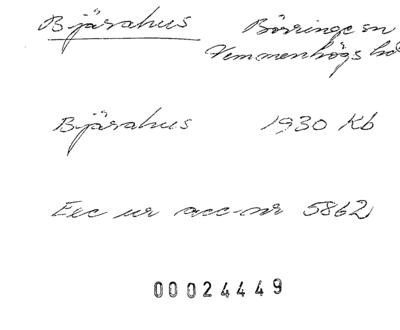 Bjärahus Börringe sn
Vemmenhögs hd
Bjärahus 1930 Kb
Exc ur acc-nr 5862
00024449